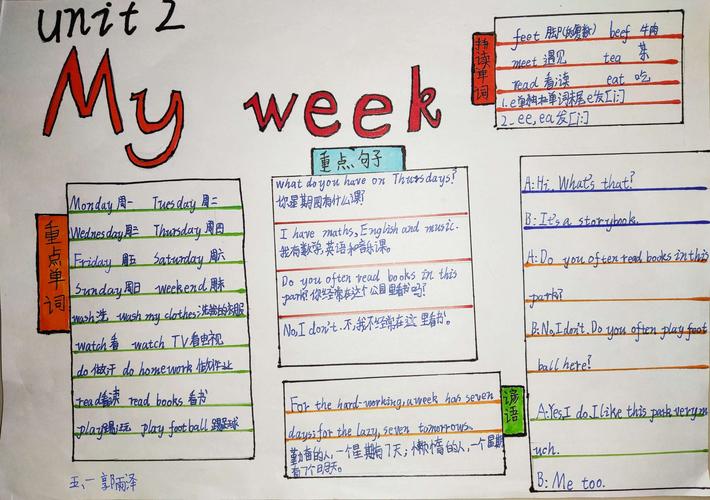 unit 2
My week
拼读单词
feet 脚(的复数) beef 牛肉
meet 遇见 tea 茶
read 看;读 eat 吃
1.e单独在单词末尾e发[i:]
2.ee,ea发[i:]
重点单词
Monday 周一 Tuesday 周二
Wednesday周三 Thursday 周四
Friday 周五 Saturday 周六
Sunday周日 weekend 周末
wash洗 wash my clothes洗我的衣服
watch看 watch TV看电视
do 做;干 do homework 做作业
read看;读 read books 看书
play踢;玩 play football 踢足球
重点句子
what do you have on Thursdays?
你星期四有什么课?
I have maths, English and music.
我有数学,英语和音乐课。
Do you often read books in this
park?你经常在这个公园里看书吗?
No,I don't.不,我不经常在这里看书。
谚语
For the hard-working, a week has seven
days; for the lazy, seven tomorrows.
勤奋的人,一个星期有7天;懒惰的人,一个星期
有7个明天。
A:Hi. What's that?
B:It's a storybook.
A:Do you often read books in this
park?
B:No,I don't. Do you often play foot
ball here?
A:Yes,I do.I like this park very m
uch.
B: Me too.
五、一 郭雨泽